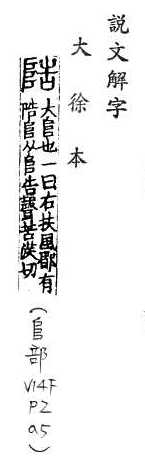 説文解字
大徐本
䧊 大𨸏也一曰右扶風郿有
䧊𨸏从𨸏告聲苦沃切
(𨸏部 V14F P2 a5)